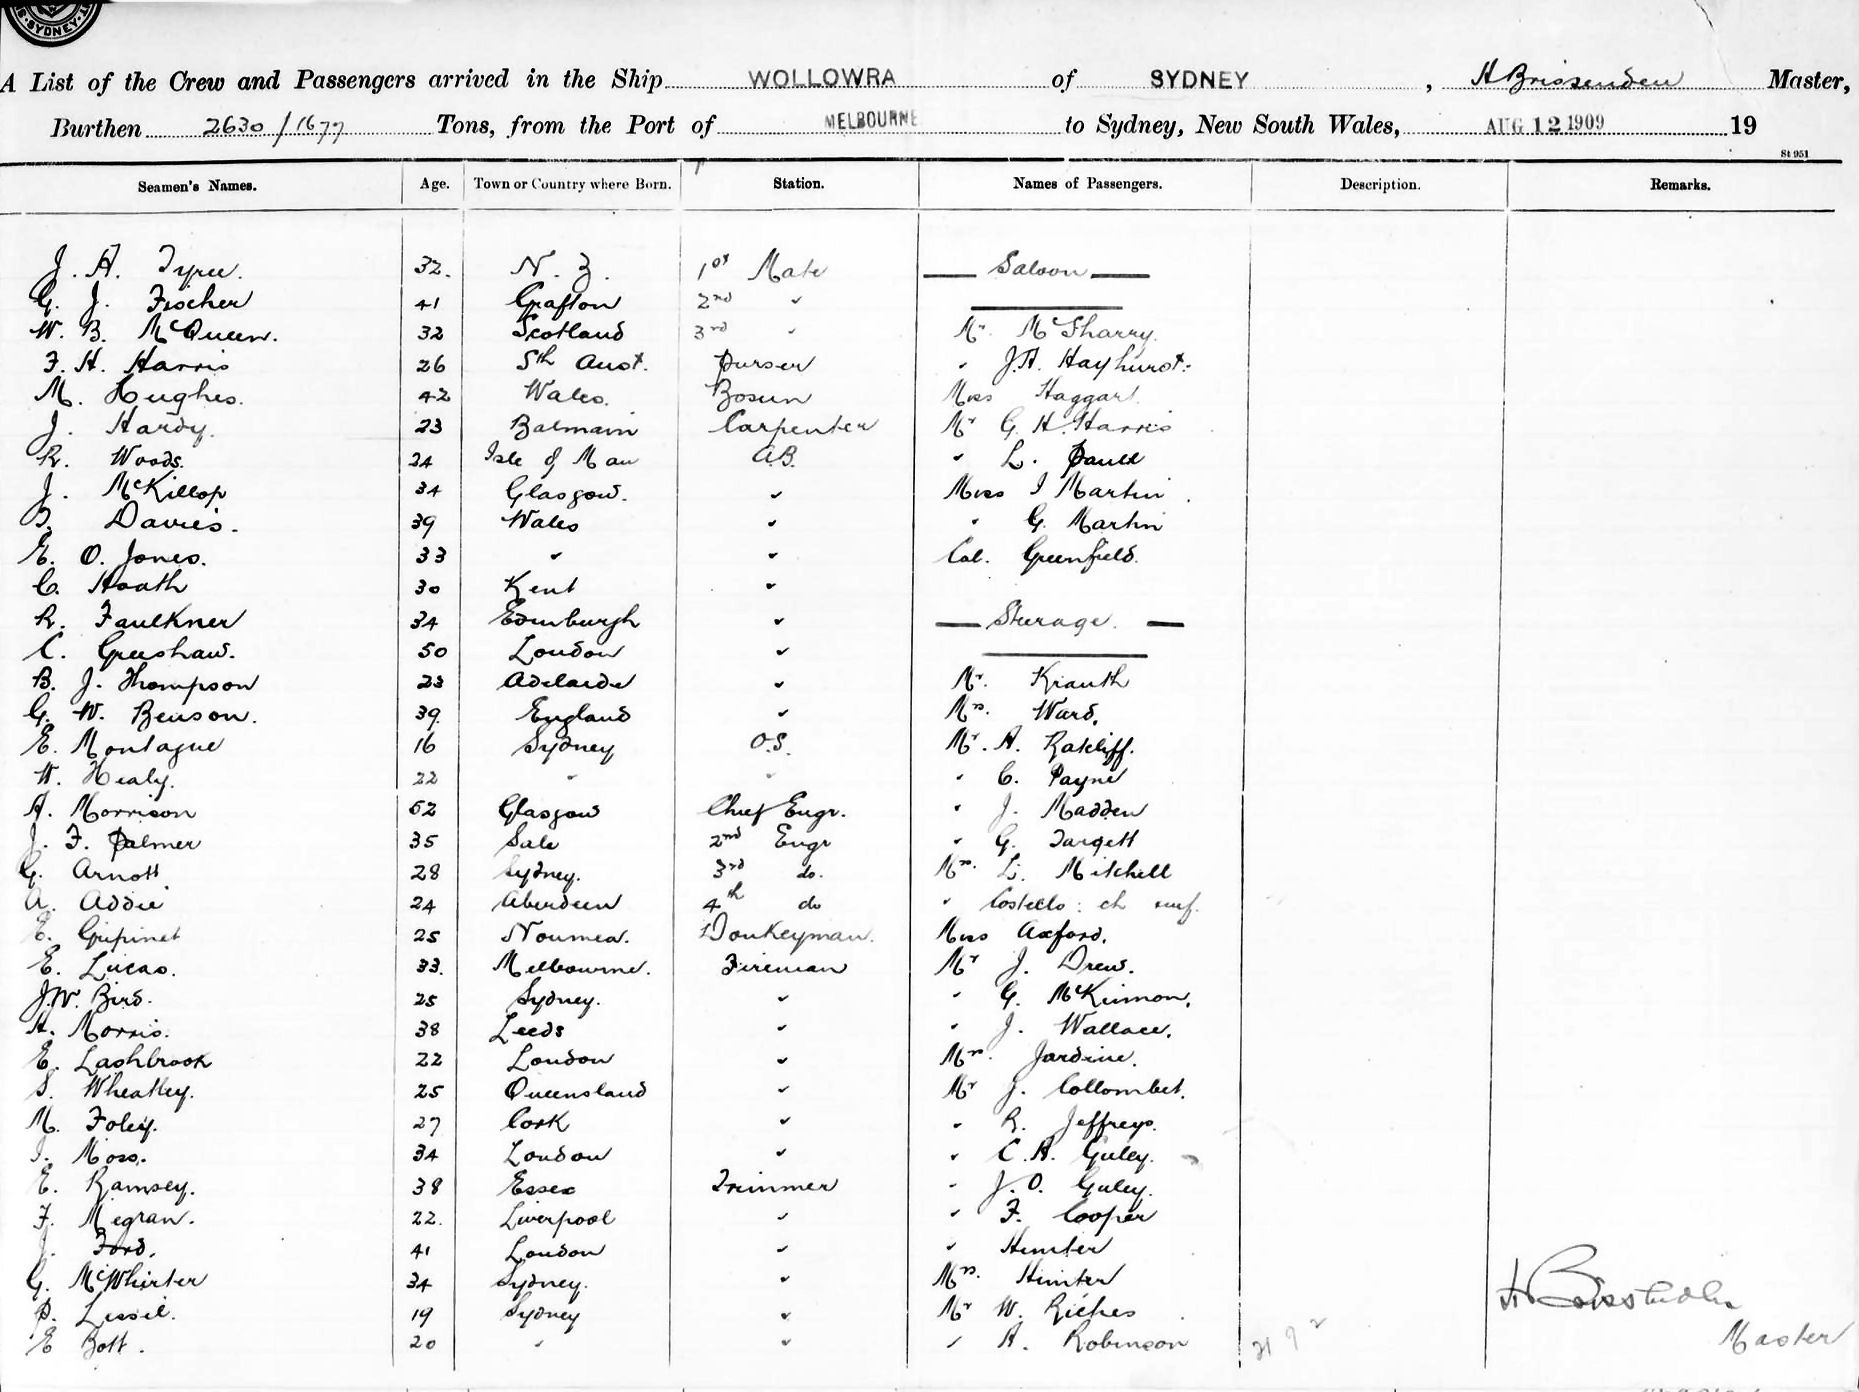 SYDNEY
A List of the Crew and Passengers arrived in the Ship WOLLOWRA of SYDNEY, H Brissenden Master,
Burthen 2630/1677 Tons, from the Port of MELBOURNE to Sydney, New South Wales, AUG 12 1909 19
St 951
Seamen's Names. Age. Town or Country where Born. Station. Names of Passengers. Description. Remarks.
J. A. Tyree. 32. N. Z. 1st Mate Saloon
G. J. Fischer 41 Grafton 2nd "
W. B. McQueen. 32 Scotland 3rd " Mr. McSharry.
F. H. Harris 26 Sth Aust. Purser " J.A. Hayhurst.
M. Hughes. 42 Wales. Bosun Miss Haggart.
J. Hardy. 23 Balmain Carpenter Mr G. H. Harris
R. Woods. 24 Isle of Man A.B. " L.
J. McKillop 34 Glasgow. " Miss I Martin
Davies. 39 Wales " " G. Martin
E. O. Jones. 33 " " Col. Greenfield.
C. Hoath 30 Kent "
R. Faulkner 34 Edinburgh " Steerage.
C. Greeshaw. 50 London "
B. J. Thompson 23 Adelaide " Mr. Krauth
G. W. Benson. 39. England " Mrs. Ward.
E. Montague 16 Sydney O.S. Mr. A. Ratcliff.
W. Healy. 22 " " " C. Payne
A. Morrison 52 Glasgow Chief Engr. " J. Madden
J. F. Palmer 35 Sale 2nd Engr " G. Targett
G. Arnott 28 Sydney. 3rd do. Mrs. L. Mitchell
A. Addie 24 Aberdeen 4th do " Costello: ch
25 Noumea. Donkeyman. Miss Axford.
E. Lucas. 33. Melbourne. Fireman Mr J. Drew.
J.W. Bird. 25 Sydney. " " G. McKinnon.
A. Morris. 38 Leeds " " J. Wallace.
E. Lashbrook 22 London " Mrs. Jardine.
S. Wheatley. 25 Queensland " Mr J. Collombet.
M. Foley. 27 Cork " " R. Jeffreys.
Moss. 34 London " " C. A. Guley.
E. Ramsey. 38 Essex Trimmer " J. O. Guley.
F. Megran. 22. Liverpool " " F. Cooper
J. Ford. 41 London " " Hunter
G. McWhirter 34 Sydney. " Mrs. Hunter
P. Lessil. 19 Sydney " Mr W. Riches
E Bott. 20 " " " A. Robinson
Master